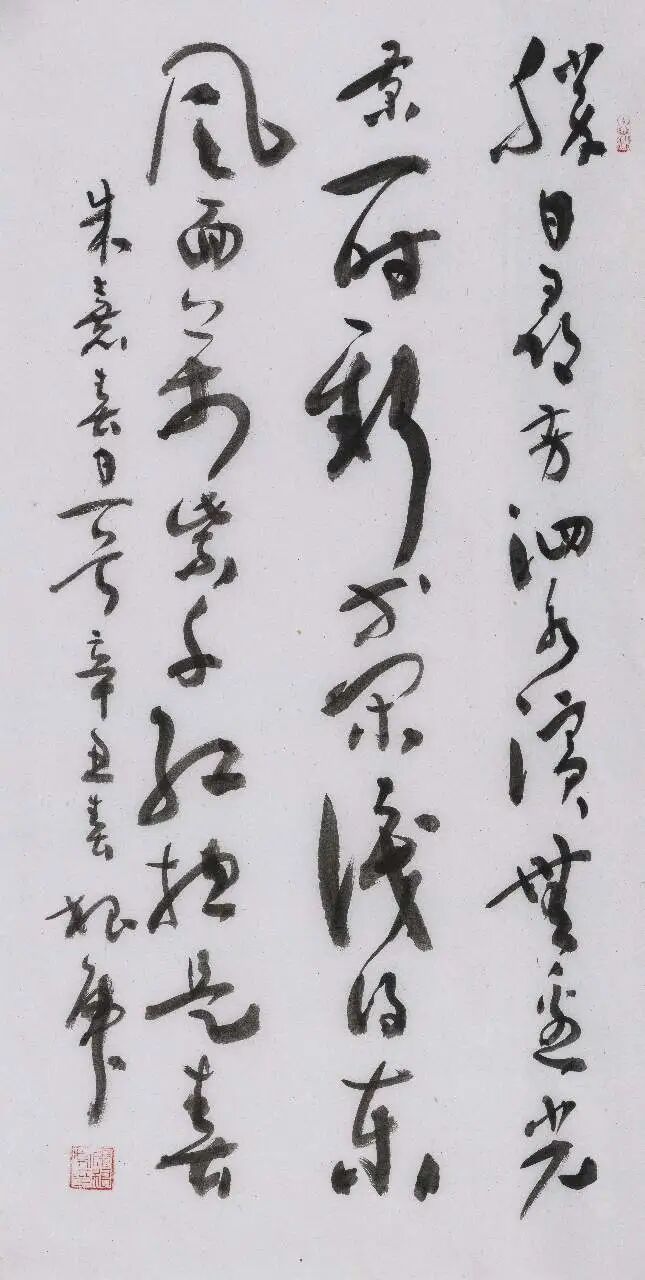 勝日尋芳泗水濱無邊光
景一時新等閒識得東
風面萬紫千紅總是春
朱熹春日一首辛丑春